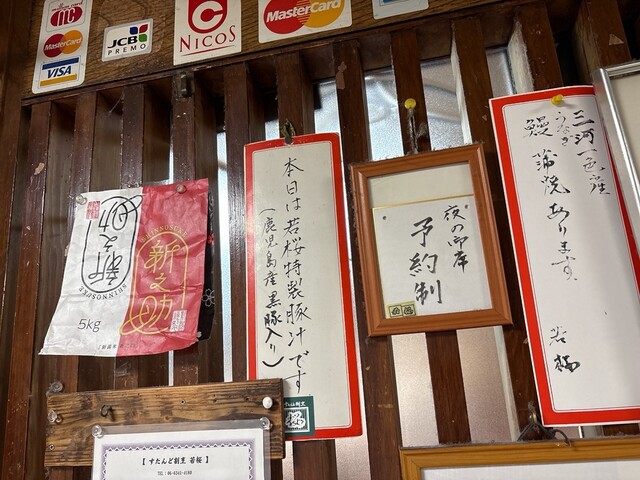 MasterCard
VISA
JCB
PREMO
NICOS
MasterCard
新之助
SHINNOSUKE
5kg
新之助
SHINNOSUKE
本日は若桜特製豚汁です
(鹿児島産黒豚入り)
夜の御席
予約制
三河一色産
うなぎ
鰻蒲焼あります。
若桜
【すたんど割烹 若桜】